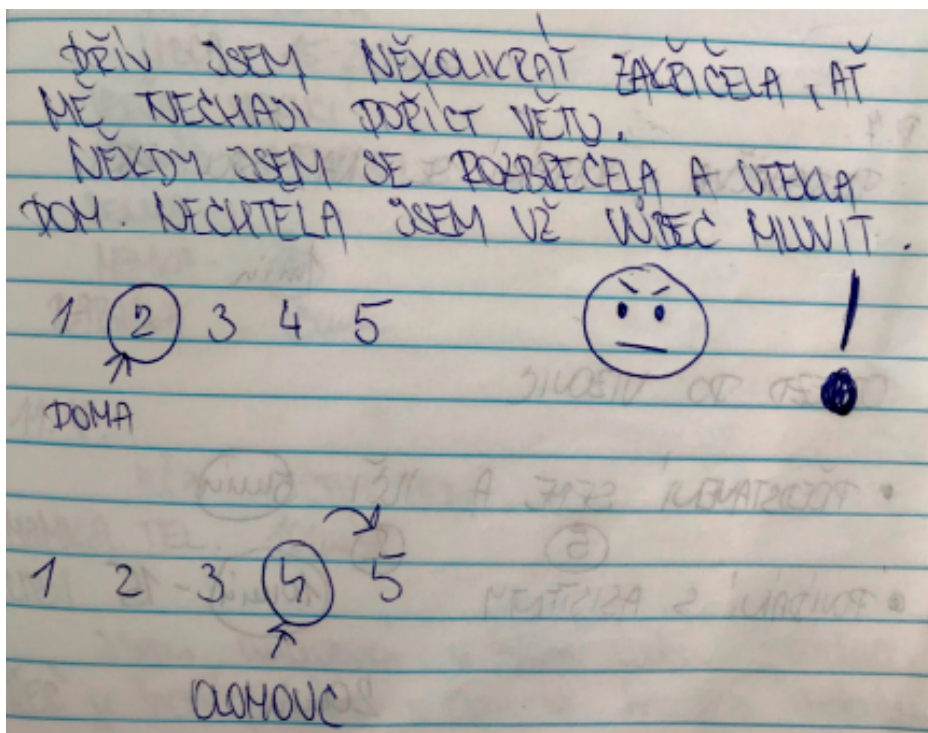 DŘÍV JSEM NĚKOLIKRÁT ZAKŘIČELA, AŤ
MĚ NECHAJI DOŘÍCT VĚTU.
NĚKDY JSEM SE ROZBREČELA A UTEKLA
DOM. NECHTĚLA JSEM UŽ VŮBEC MLUVIT.
1 2 3 4 5 !
DOMA
1 2 3 4 5
OLOMOUC